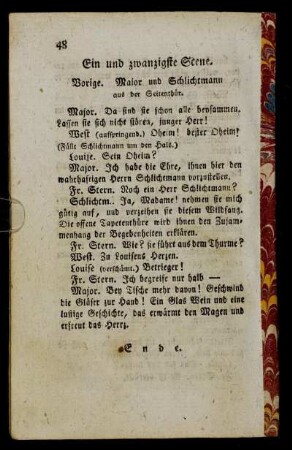 48
Ein und zwanzigste Scene.
Vorige. Major und Schlichtmann
aus der Seitenthür.
Major. Da sind sie schon alle beysammen.
Lassen sie sich nicht stören, junger Herr!
West (aufspringend.) Oheim! bester Oheim!
(Fällt Schlichtmann um den Hals.)
Louise. Sein Oheim?
Major. Ich habe die Ehre, ihnen hier den
wahrhaftigen Herrn Schlichtmann vorzustellen.
Fr. Stern. Noch ein Herr Schlichtmann?
Schlichtm. Ja, Madame! nehmen sie mich
gütig auf, und verzeihen sie diesem Wildfang.
Die offene Tapetenthüre wird ihnen den Zusam-
menhang der Begebenheiten erklären.
Fr. Stern. Wie? sie führt aus dem Thurme?
West. Zu Louisens Herzen.
Louise (verschämt.) Betrieger!
Fr. Stern. Ich begreife nur halb —
Major. Bey Tische mehr davon! Geschwind
die Gläser zur Hand! Ein Glas Wein und eine
lustige Geschichte, das erwärmt den Magen und
erfreut das Herz.
Ende.